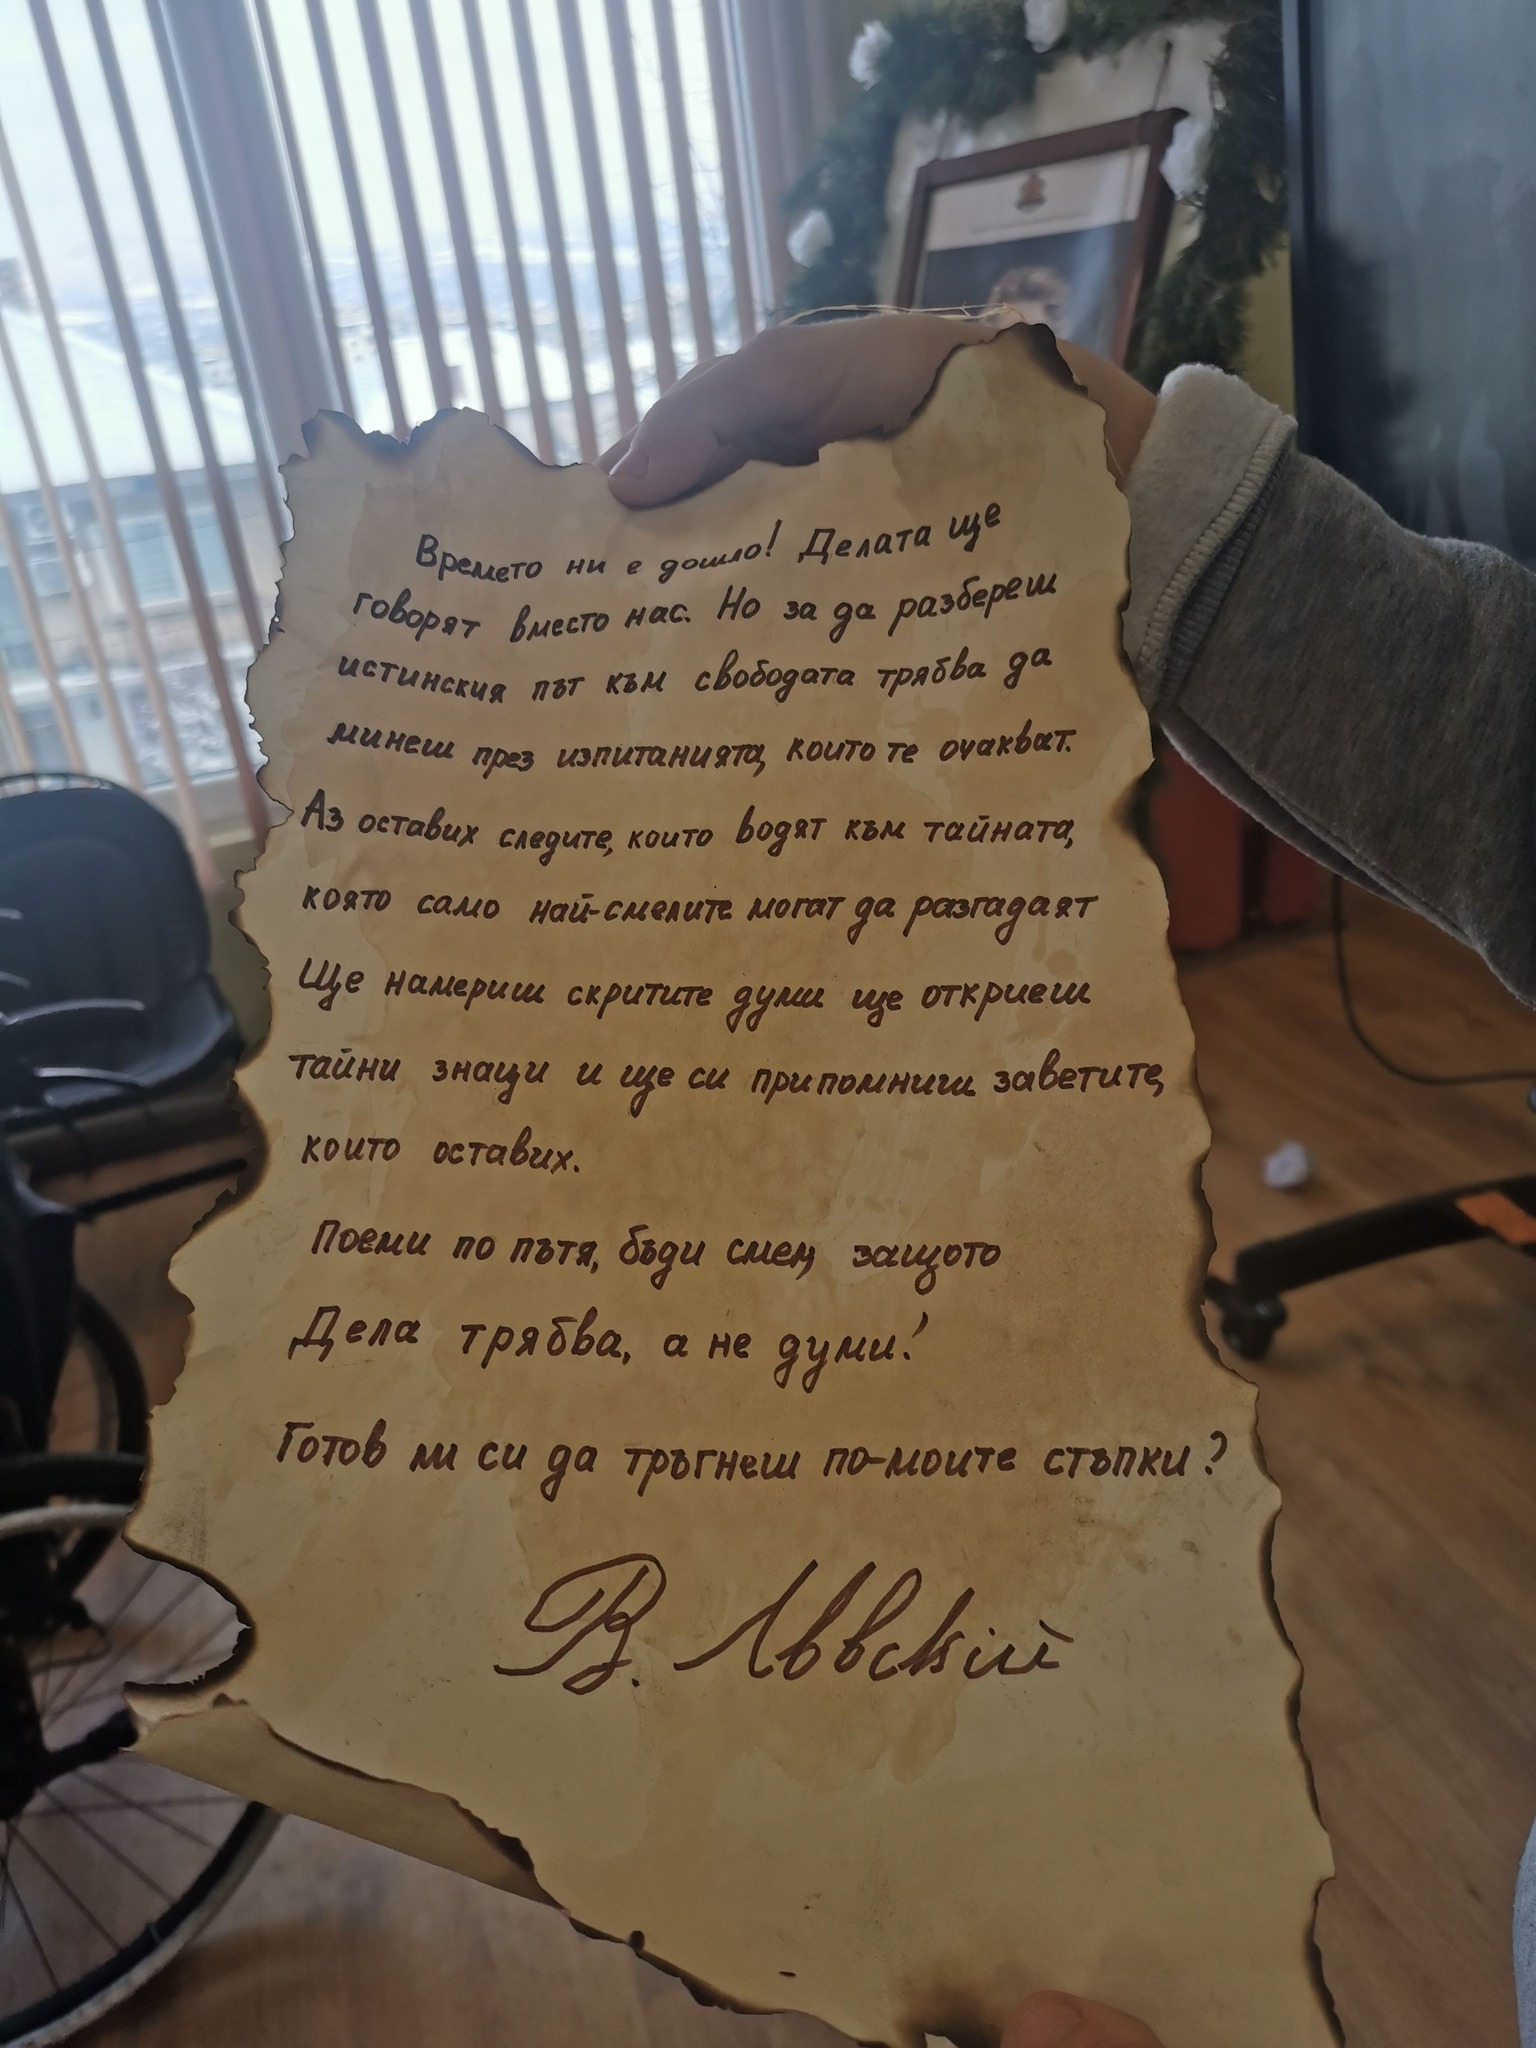 Времето ни е дошло! Делата ще
говорят вместо нас. Но за да разбереш
истинския път към свободата трябва да
минеш през изпитанията, които те очакват.
Аз оставих следите, които водят към тайната,
която само най-смелите могат да разгадаят
Ще намериш скритите думи ще откриеш
тайни знаци и ще си припомниш заветите,
които оставих.
Поеми по пътя, бъди смел, защото
Дела трябва, а не думи!
Готов ли си да тръгнеш по-моите стъпки?
В. Лѣвскій